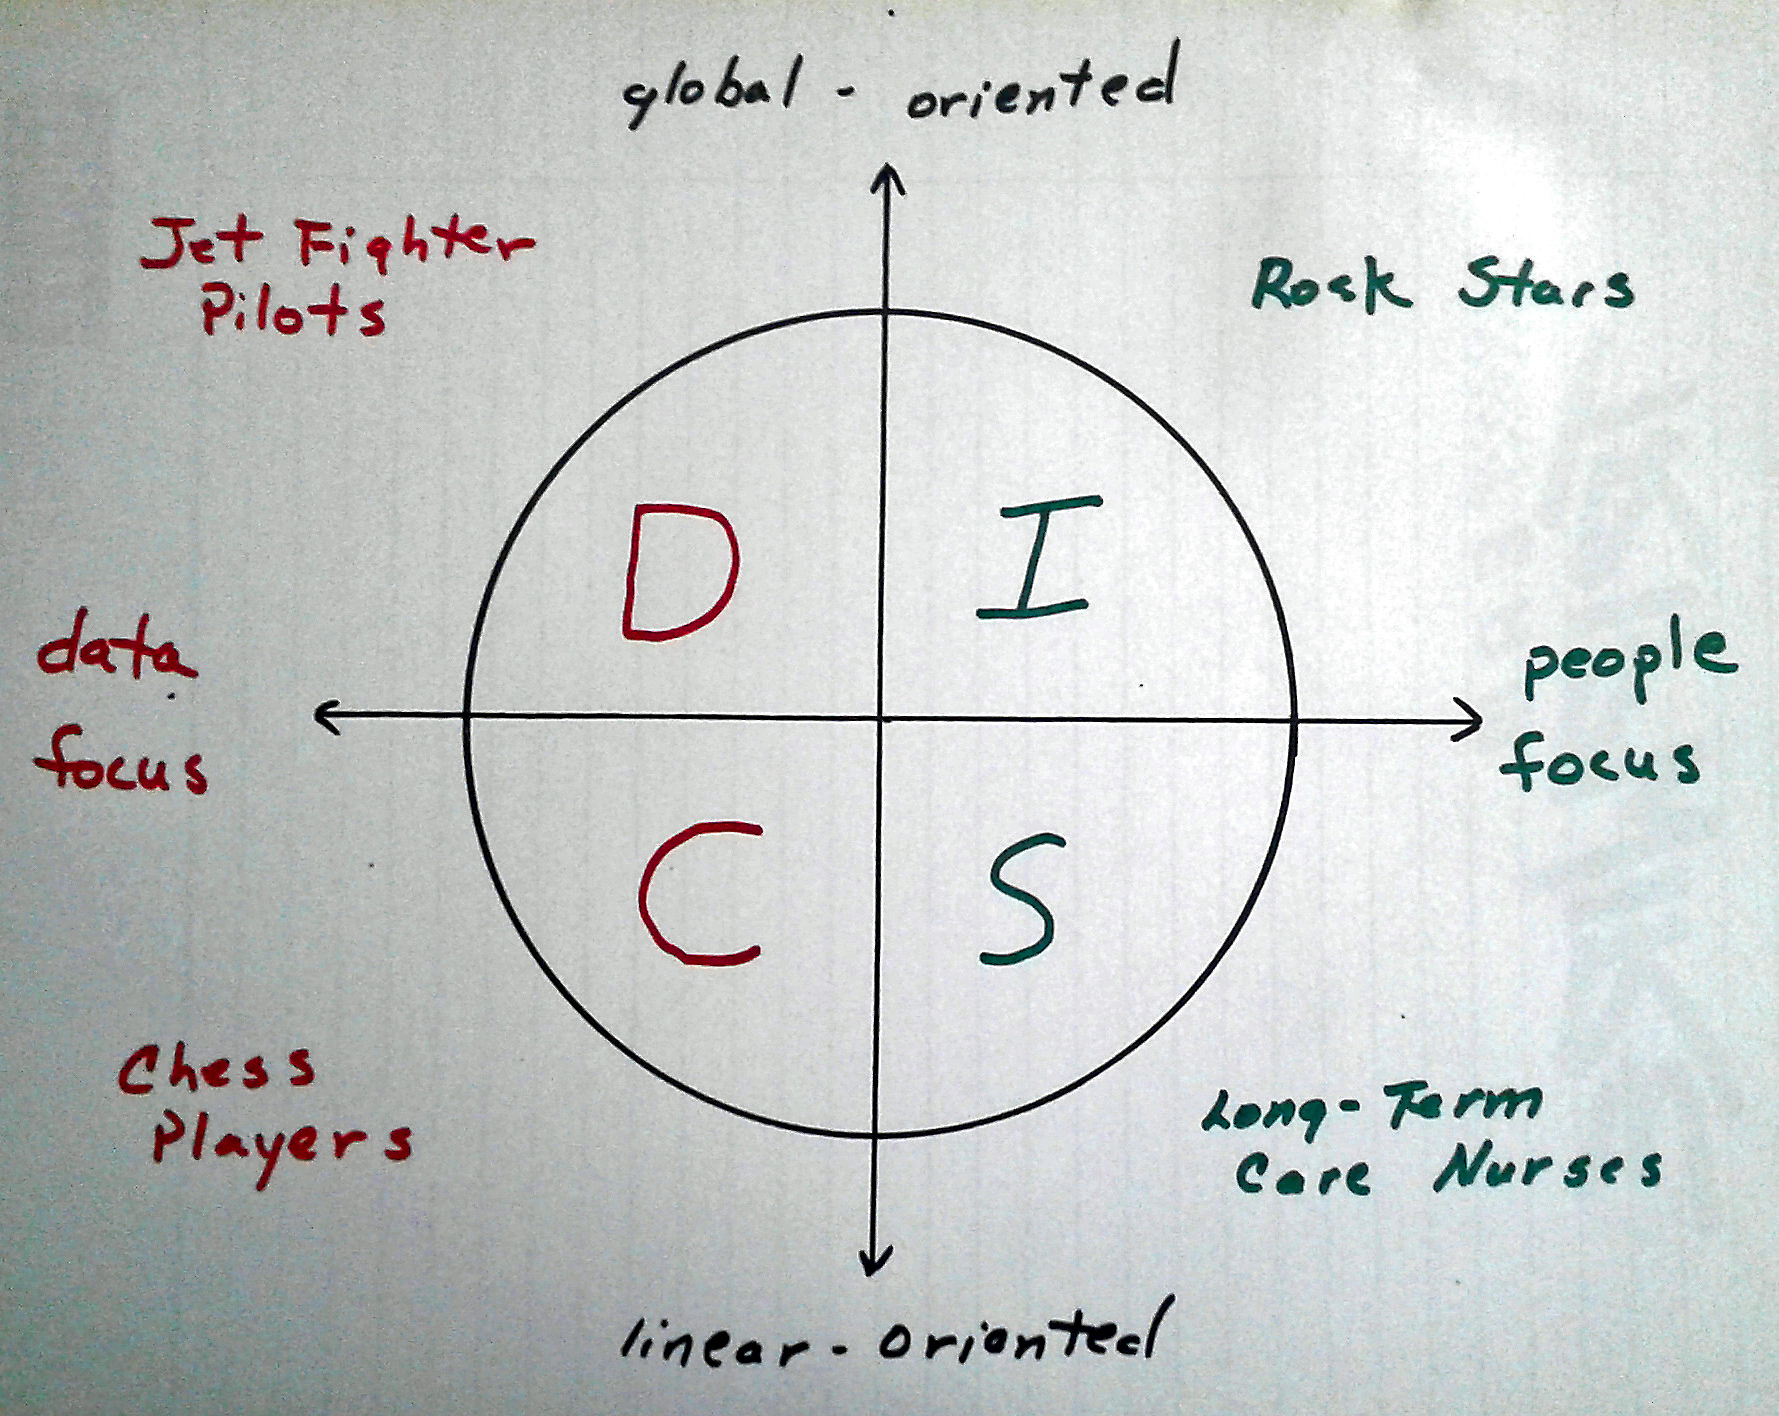 global - oriented
Jet Fighter
Pilots
Rock Stars
D
I
data
focus
people
focus
C
S
Chess
Players
Long-Term
Care Nurses
linear-oriented